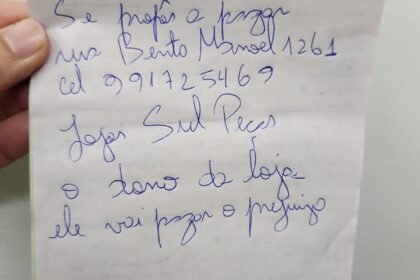 Se propôs a pagar
rua Bento Manoel 1261
cel 991725469
Lojas Sul Peças
o dono da loja
ele vai pagar o prejuizo